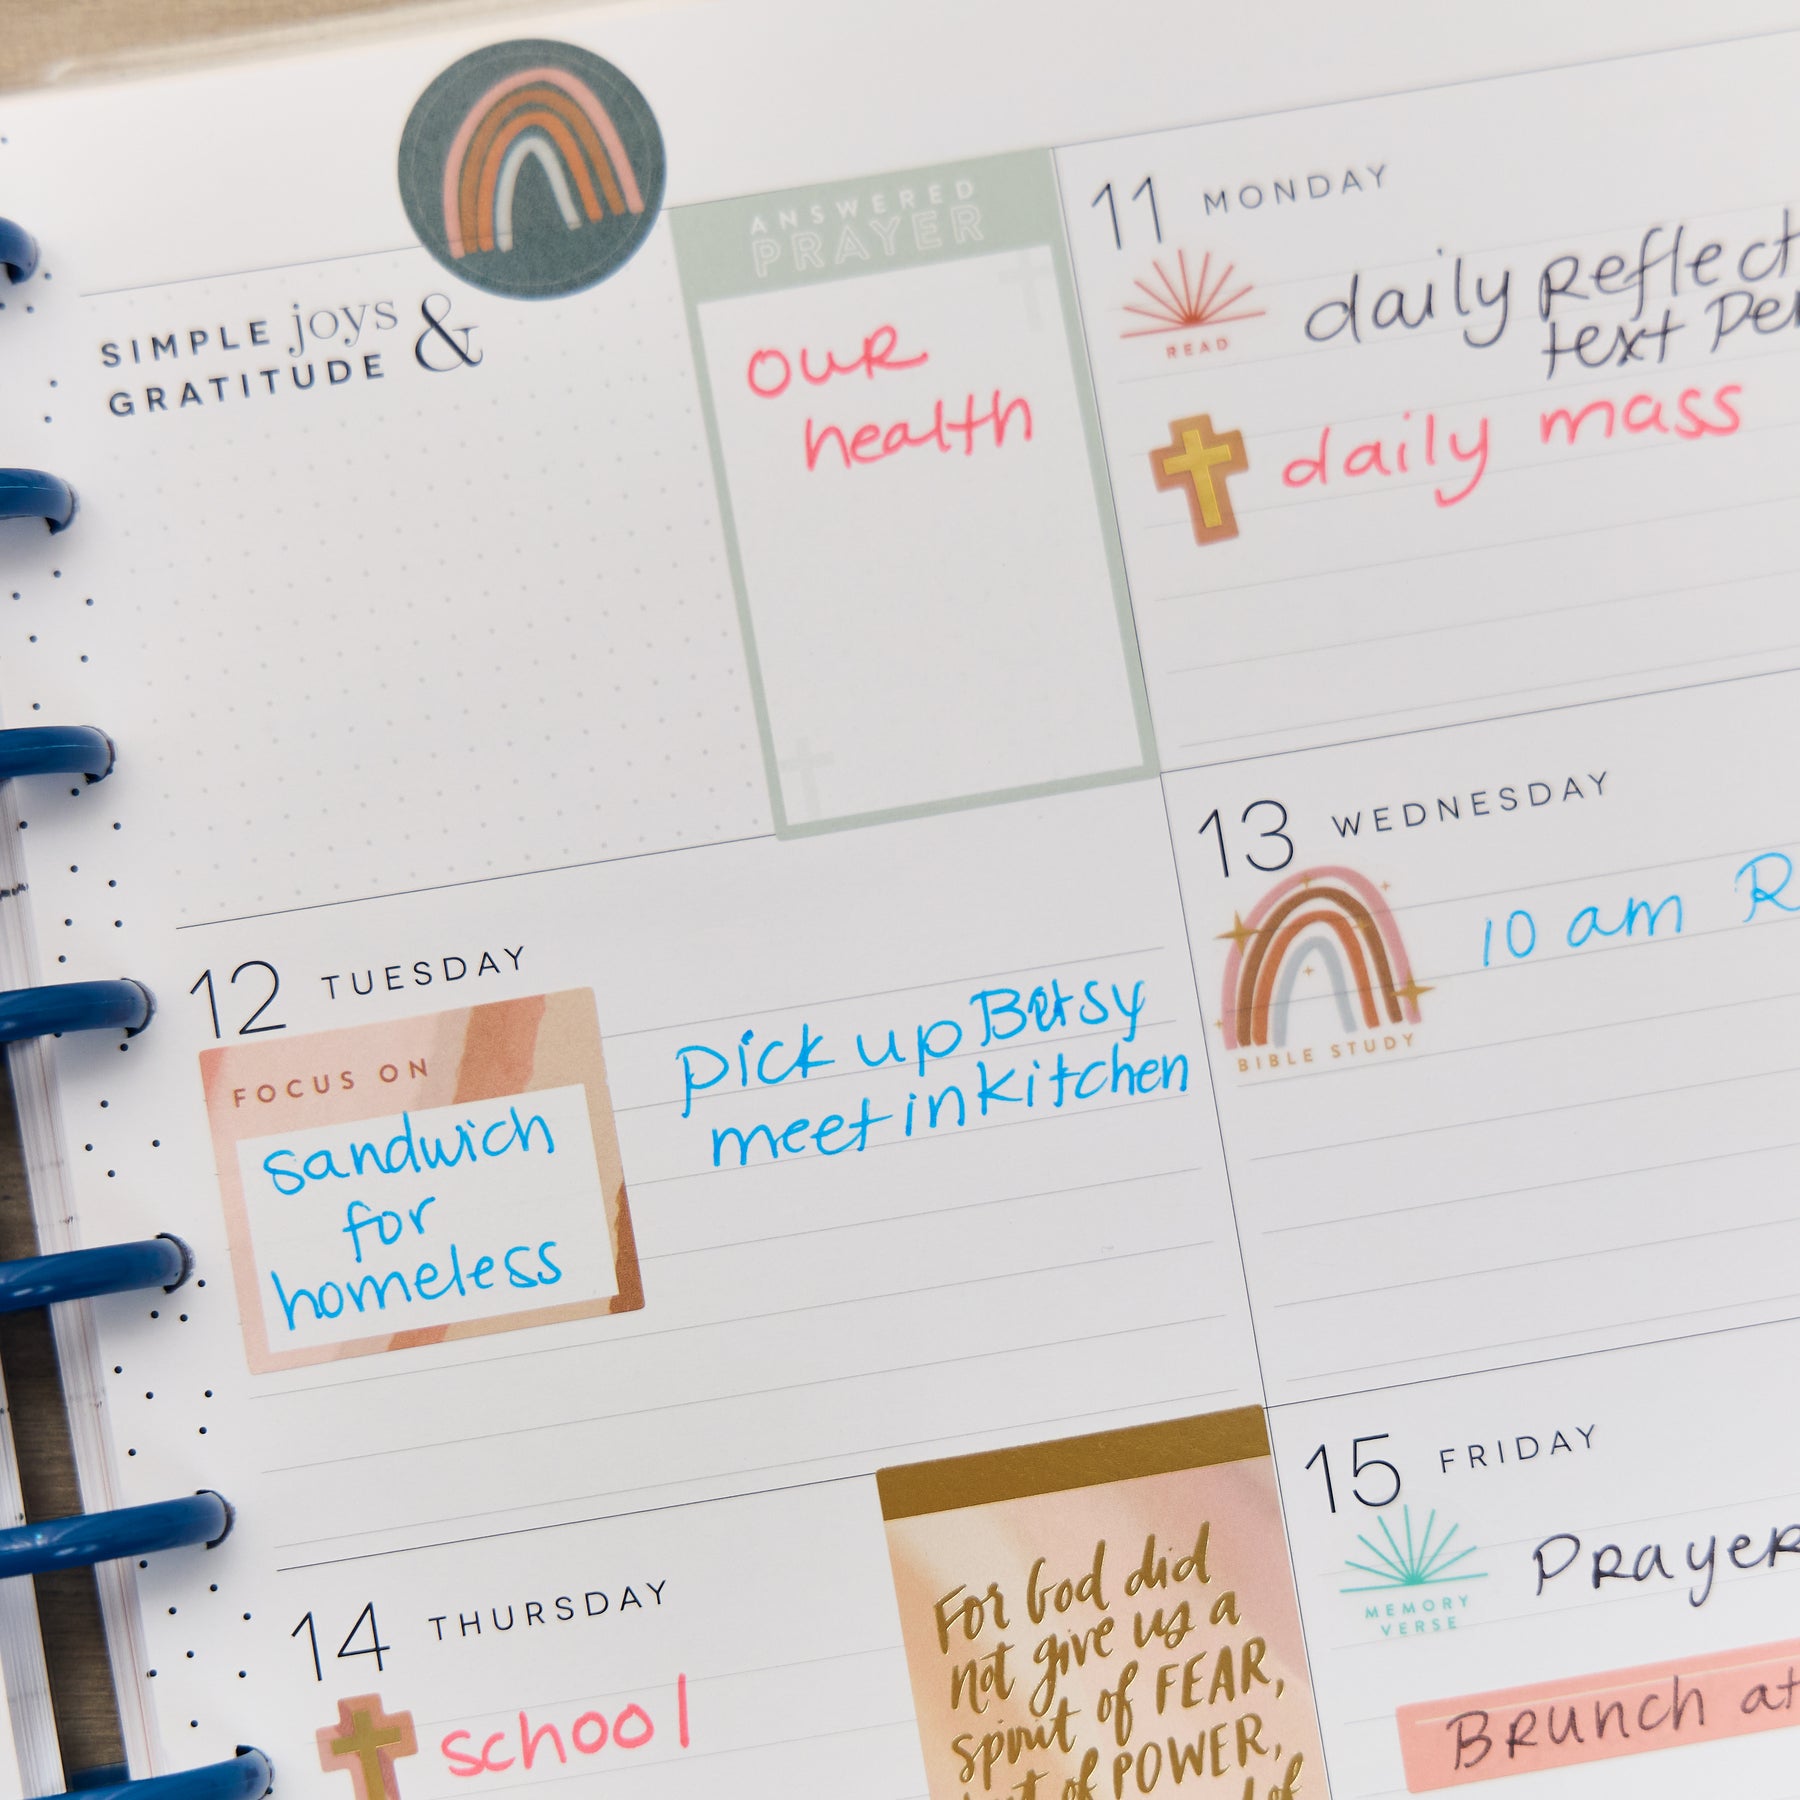 SIMPLE joys &
GRATITUDE
ANSWERED
PRAYER
our
health
11 MONDAY
READ
daily Reflect
text
daily mass
12 TUESDAY
FOCUS ON
sandwich
for
homeless
pick up Betsy
meet in kitchen
13 WEDNESDAY
BIBLE STUDY
10 am R
14 THURSDAY
school
For God did
not give us a
spirit of FEAR,
of POWER,
of
15 FRIDAY
MEMORY
VERSE
Prayer
Brunch at